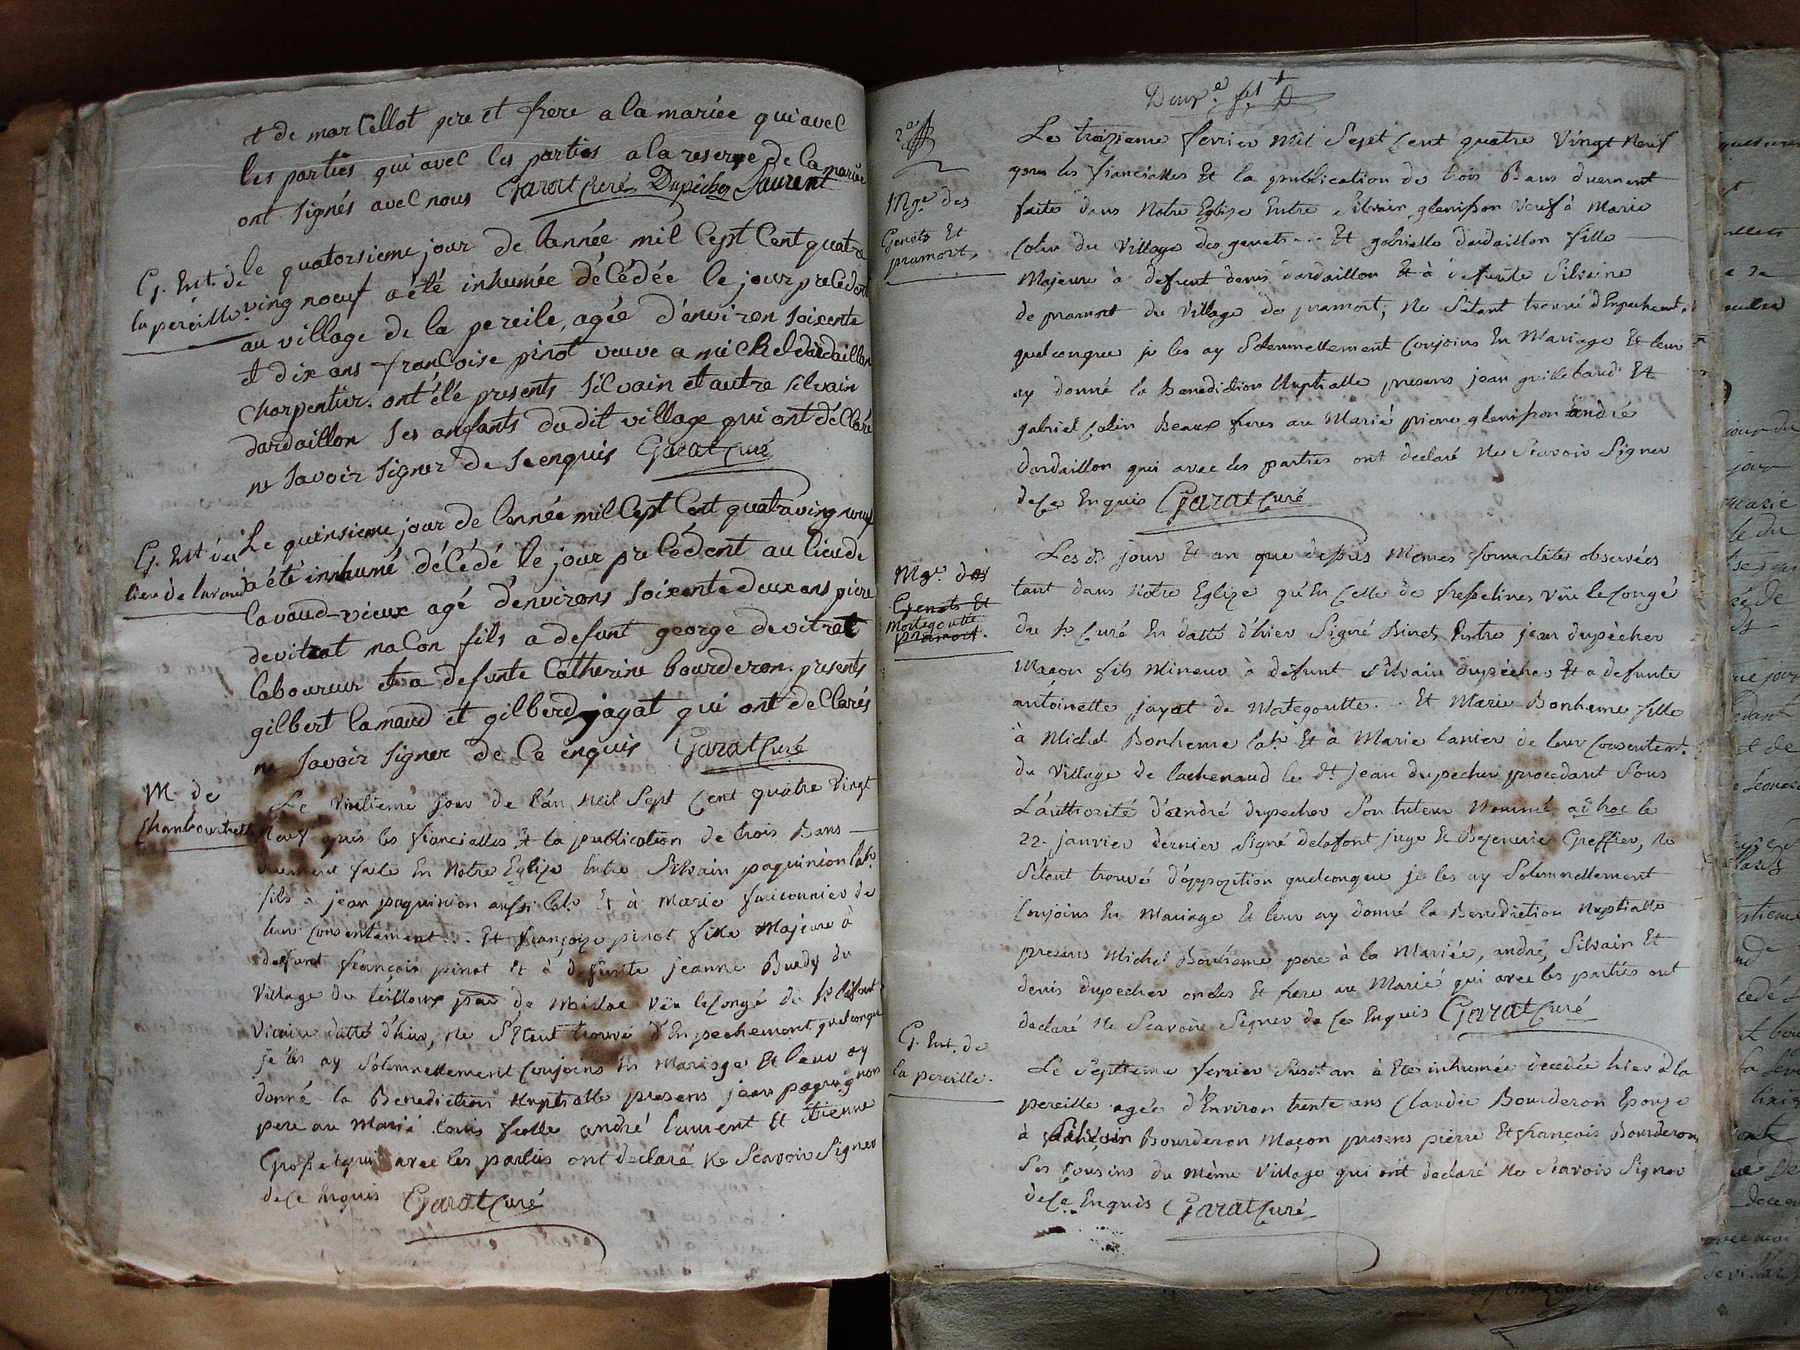 et de marcellot pere et frere a la mariée qui avec
les parties qui avec les parties a la reserve de la mariée
ont signés avec nous Garat Curé Dupècher Laurent
G. Ent. de
la pereille
le quatorsieme jour de lannée mil Cept Cent quatre
ving noeuf a été inhumée décédée le jour précedent
au village de la pereile, agée d'environ soixente
et dix ans francoise pinot veuve a michel dardaillon
charpentier. ont été presents silvain et autre silvain
dardaillon ses anfants du dit village qui ont déclaré
ne savoir signer de se enquis Garat Curé
G. Ent du
lieu de lavaud
Le quinsieme jour de lennée mil Cept Cent quatreving noeuf
a été innhumé décédé le jour précédent au lieu de
lavaud-vieux agé d'environs soixente deux ans piere
devitrat macon fils a defunt george devitrat
laboureur et a defunte Catherine bourderon. presents
gilbert lamaud et gilberd jagat qui ont declarés
ne savoir signer de Ce enquis Garat Curé
M. de
Chambouchet
Le vintieme jour de l'an Mil Sept Cent quatre Vingt
Neuf après les fiancialles Et la publication de trois Bans
duement faite En Notre Eglize Entre Silvain paquinion labr.
fils à jean paquinion aussi labr. Et à Marie fauconnier de
leur consentement... Et françoise pinot fille Majeure à
defunt françois pinot Et à defunte jeanne Buedy du
Village du de Mislac Vüe le Congé du
Vicaire datté d'hier, Ne S'étant trouvé d'Enpechement quelconque
je les ay Solemnellement Conjoins En Mariage Et leur ay
donné la Benediction Nuptialle presens jean paquignon
pere au Marié louis andré laurent Et étienne
qui avec les parties ont declaré Ne Scavoir Signer
de Ce Enquis Garat Curé
Mge. des
Genets Et
pramort,
Le traizieme fevrier Mil Sept Cent quatre Vingt Neuf
après les fiancialles Et la publication de trois Bans duement
faite dans Notre Eglize Entre Silvain glenisson Veuf à Marie
Colin du Village des genets... Et gabrielle dardaillon fille
Majeure à defunt denis dardaillon Et à defunte Silvaine
de pramort du Village de pramort, Ne Sétant trouvé d'Enpechement
quelconque je les ay Solemnellement Conjoins En Mariage Et leur
ay donné la Benediction Nuptialle presens jean guillebaud Et
gabriel Colin Beaux freres au Marié pierre glenisson andré
dardaillon qui avec les parties ont declaré Ne Scavoir Signer
de Ce Enquis Garat Curé
Mge. des
Genets Et
Mortegoutte
Pramort.
Les ds. jour Et an que dessus Memes formalités observées
tant dans Notre Eglize qu'En Celle de fresselines vüe le Congé
du Sr Curé En datte d'hier Signé Binet, Entre jean dupècher
Maçon fils Mineur à defunt Silvain dupécher Et a defunte
antoinette jayat de Mortegoutte... Et Marie Bonheme fille
à Michel Bonheme labr. Et à Marie lanier de leur Consentemt.
du Village de lachenaud le dt. jean dupecher procedant Sous
L'authorité d'andré dupecher Son tuteur Nommé ad hoc le
22. janvier dernier Signé delafont juge Et Bazenerie Greffier, Ne
Sétant trouvé d'oppozition quelconque je les ay Solemnellement
Conjoins En Mariage Et leur ay donné la Benediction Nuptialle
presens Michel Bonheme pere à la Mariée, andré, Silvain Et
denis dupecher oncles Et frere au Marié qui avec les parties ont
declaré Ne Scavoir Signer de Ce Enquis Garat Curé
G. Ent. de
la pereille.
Le Septieme fevrier Susdt. an à Eté inhumée decedée hier à la
pereille agée d'Environ trente ans Claudie Bourderon Epouze
à Silvain Bourderon Maçon presens pierre Et françois Bourderon
Ses Cousins du Même Village qui ont declaré Ne Scavoir Signer
de Ce Enquis Garat Curé